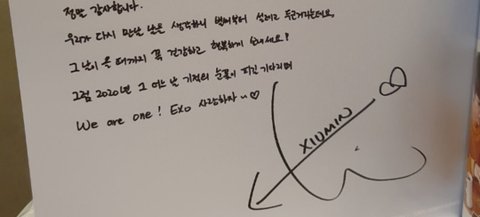 정말 감사합니다.
우리가 다시 만날 날을 생각하니 벌써부터 설레고 두근거리는데요,
그 날이 올 때까지 꼭 건강하고 행복하게 보내세요!
그럼 2020년 그 어느 날 기적의 눈꽃이 피길 기다리며
We are one! EXO 사랑하자 ㅡ♡
XIUMIN